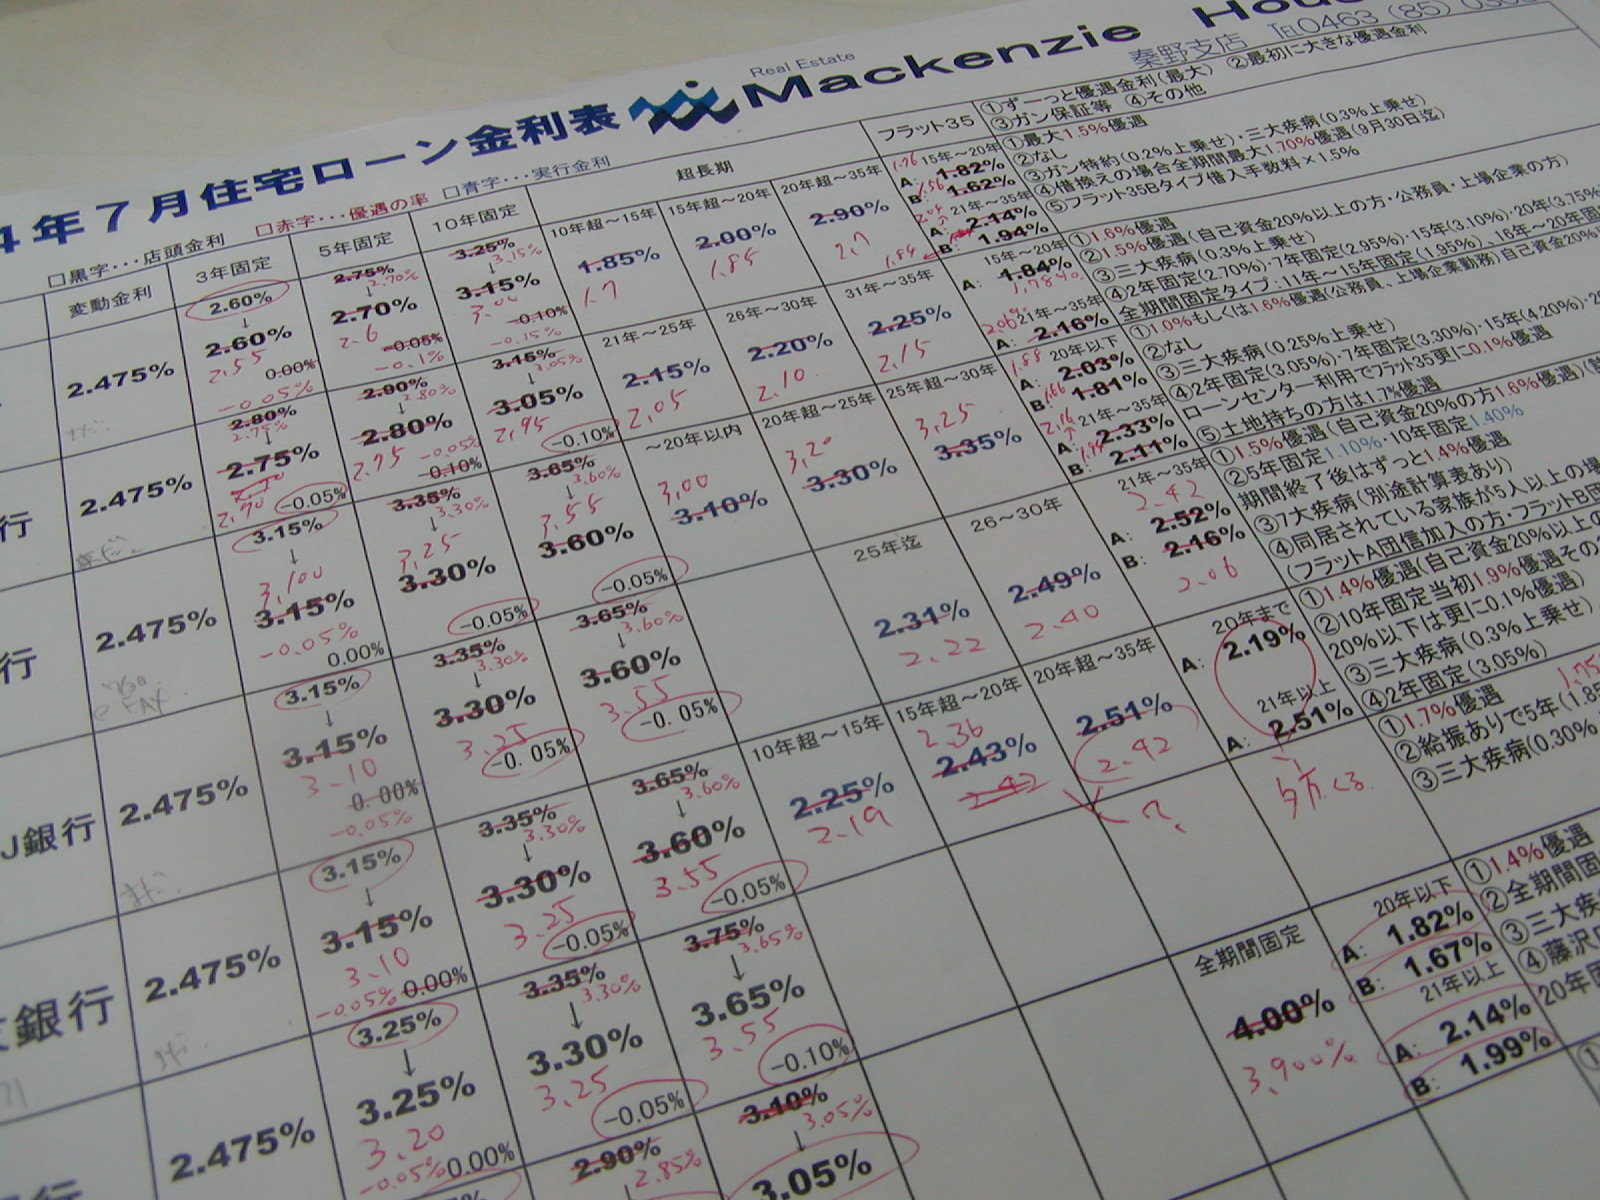 4年7月住宅ローン金利表
Real Estate
Mackenzie
秦野支店 TEL0463 (85)
□黒字･･･店頭金利 □赤字･･･優遇の率 □青字･･･実行金利
変動金利 3年固定 5年固定 10年固定 超長期 フラット35
①ずーっと優遇金利(最大) ②最初に大きな優遇金利
③ガン保証等 ④その他
2.475%
2.60%
↓
2.60%
2.55
0.00%
-0.05%
2.75%
2.70%
↓
2.70%
2.6
-0.05%
-0.1%
3.25%
3.15%
↓
3.15%
3.00
-0.10%
-0.15%
10年超～15年
1.85%
1.7
15年超～20年
2.00%
1.85
20年超～35年
2.90%
2.7
15年～20年
A: 1.82%
B: 1.62%
21年～35年
A: 2.14%
B: 1.94%
1.84
①最大1.5%優遇
②なし
③ガン特約(0.2%上乗せ)･三大疾病(0.3%上乗せ)
④借換えの場合全期間最大1.70%優遇(9月30日迄)
⑤フラット35Bタイプ借入手数料×1.5%
行
2.475%
まだ
2.80%
2.75%
↓
2.75%
2.70
-0.05%
2.80%
2.80%
↓
2.80%
2.75
-0.05%
-0.10%
3.15%
3.05%
↓
3.05%
2.95
-0.10%
21年～25年
2.15%
2.05
26年～30年
2.20%
2.10
31年～35年
2.25%
2.15
15年～20年
A: 1.84%
21年～35年
A: 2.16%
①1.6%優遇
②1.5%優遇(自己資金20%以上の方･公務員･上場企業の方)
③三大疾病(0.3%上乗せ)
④2年固定(2.70%)･7年固定(2.95%)･15年(3.10%)･20年(3.75%
全期間固定タイプ:11年～15年固定(1.95%)、16年～20年固
行
2.475%
FAX
3.15%
↓
3.100
3.15%
-0.05%
0.00%
3.35%
3.30%
↓
3.25
3.30%
-0.05%
3.65%
3.60%
↓
3.55
3.60%
-0.05%
～20年以内
3.00
3.10%
20年超～25年
3.20
3.30%
25年超～30年
3.25
3.35%
20年以下
A: 2.03%
B: 1.81%
21年～35年
A: 2.33%
B: 2.11%
①1.0%もしくは1.6%優遇(公務員、上場企業勤務)自己資金20%
②なし
③三大疾病(0.25%上乗せ)
④2年固定(3.05%)･7年固定(3.30%)･15年(4.20%)･2
ローンセンター利用でフラット35更に0.1%優遇
⑤土地持ちの方は1.7%優遇
J銀行
2.475%
まだ
3.15%
↓
3.15%
3.10
0.00%
-0.05%
3.35%
3.30%
↓
3.30%
3.25
-0.05%
3.65%
3.60%
↓
3.60%
3.55
-0.05%
25年迄
2.31%
2.22
26～30年
2.49%
2.40
21年～35年
2.42
A: 2.52%
B: 2.16%
2.06
①1.5%優遇(自己資金20%の方1.6%優遇)
②5年固定1.10%･10年固定1.40%
期間終了後はずっと1.4%優遇
③7大疾病(別途計算表あり)
④同居されている家族が5人以上の場
(フラットA団信加入の方･フラットB団
銀行
2.475%
3.15%
↓
3.15%
3.10
-0.05% 0.00%
3.35%
3.30%
↓
3.30%
3.25
-0.05%
3.65%
3.60%
↓
3.60%
3.55
-0.05%
10年超～15年
2.25%
2.19
15年超～20年
2.36
2.43%
2.42
20年超～35年
2.51%
2.42
?
20年まで
A: 2.19%
21年以上
A: 2.51%
①1.4%優遇(自己資金20%以上の
②10年固定当初1.9%優遇その
20%以下は更に0.1%優遇
③三大疾病(0.3%上乗せ)
④2年固定(3.05%)
行
2.475%
3.25%
↓
3.25%
3.20
-0.05% 0.00%
3.35%
3.30%
↓
3.30%
3.25
-0.05%
3.75%
3.65%
↓
3.65%
3.55
-0.10%
①1.7%優遇
②給振ありで5年(1.85
③三大疾病(0.30%
2.90%
2.85%
3.10%
3.05%
↓
3.05%
全期間固定
4.00%
3.900%
20年以下
A: 1.82%
B: 1.67%
21年以上
A: 2.14%
B: 1.99%
①1.4%優遇
②全期間固
③三大疾
④藤沢
20年固
①